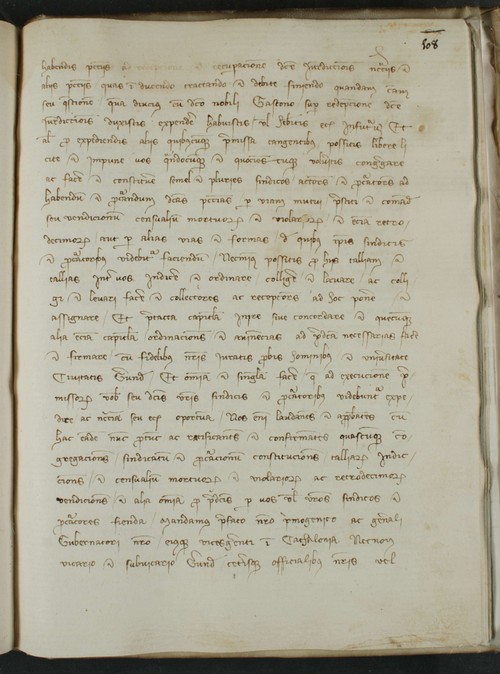 108
habendis pecuniis recupacione dce Jurediccionis necnon et
aliis pecuniis quas in ducendo tractando et debite finiendo quandam cam
seu questione qua diucius cu dco nobili Gastone sup redepcione dce
iuredictionis duxistis expendere habuistis vel habetis eciam in futurum Et
vel pro expediendis aliis quibuscumque premissa tangentibus possitis libere li
cite et impune vos quandocumque et quociescumque volueritis congregare
ac facere et constituere semel et pluries sindicos actores et procuratores ad
habendum et procurandum dictas peccunias per viam mutui presiti et comand
seu vendicionum censualium mortuorum et violariorum et eciam retro
decimorum aut per alias vias et formas de quibus ipsis sindicis
et procuratoribus videbitur faciendum Necnon possitis pro hiis talliam et
tallias inter vos Indicere et ordinare colligere et levare ac colli
gi et levari facere et collectores ac receptores ad hoc ponere et
assignare Et pretacta capitula inire sive concordare et quecumque
alia eciam capitula ordinaciones et avinencias ad predicta necessarias facere
et firmare cum fidelibus nostris Juratis probis hominibus et universitate
Civitatis Gerunde Et omnia et singula facere que ad execucionem pre
missorum vobis seu dictis vestris sindicis et procuratoribus videbuntur expe
dire ac necessaria seu eciam oportuna Nos enim laudantes et approbantes cum
hac eadem nunc pro tunc ac ratificantes et confirmantes quascumque con
gregaciones sindicatum et procuracionum constituciones talliarum Indic
ciones et censualium mortuorum et violariorum ac retrodecimorum
vendiciones et alia omnia pro predictis per vos vel vestros sindicos et
procuratores fienda Mandamus prefato nostro primogenito ac generali
Gubernatori nostro eiusque vicesgerenti in Cathalonia Necnon
vicario et subvicario Gerunde ceterisque officialibus nostris vel